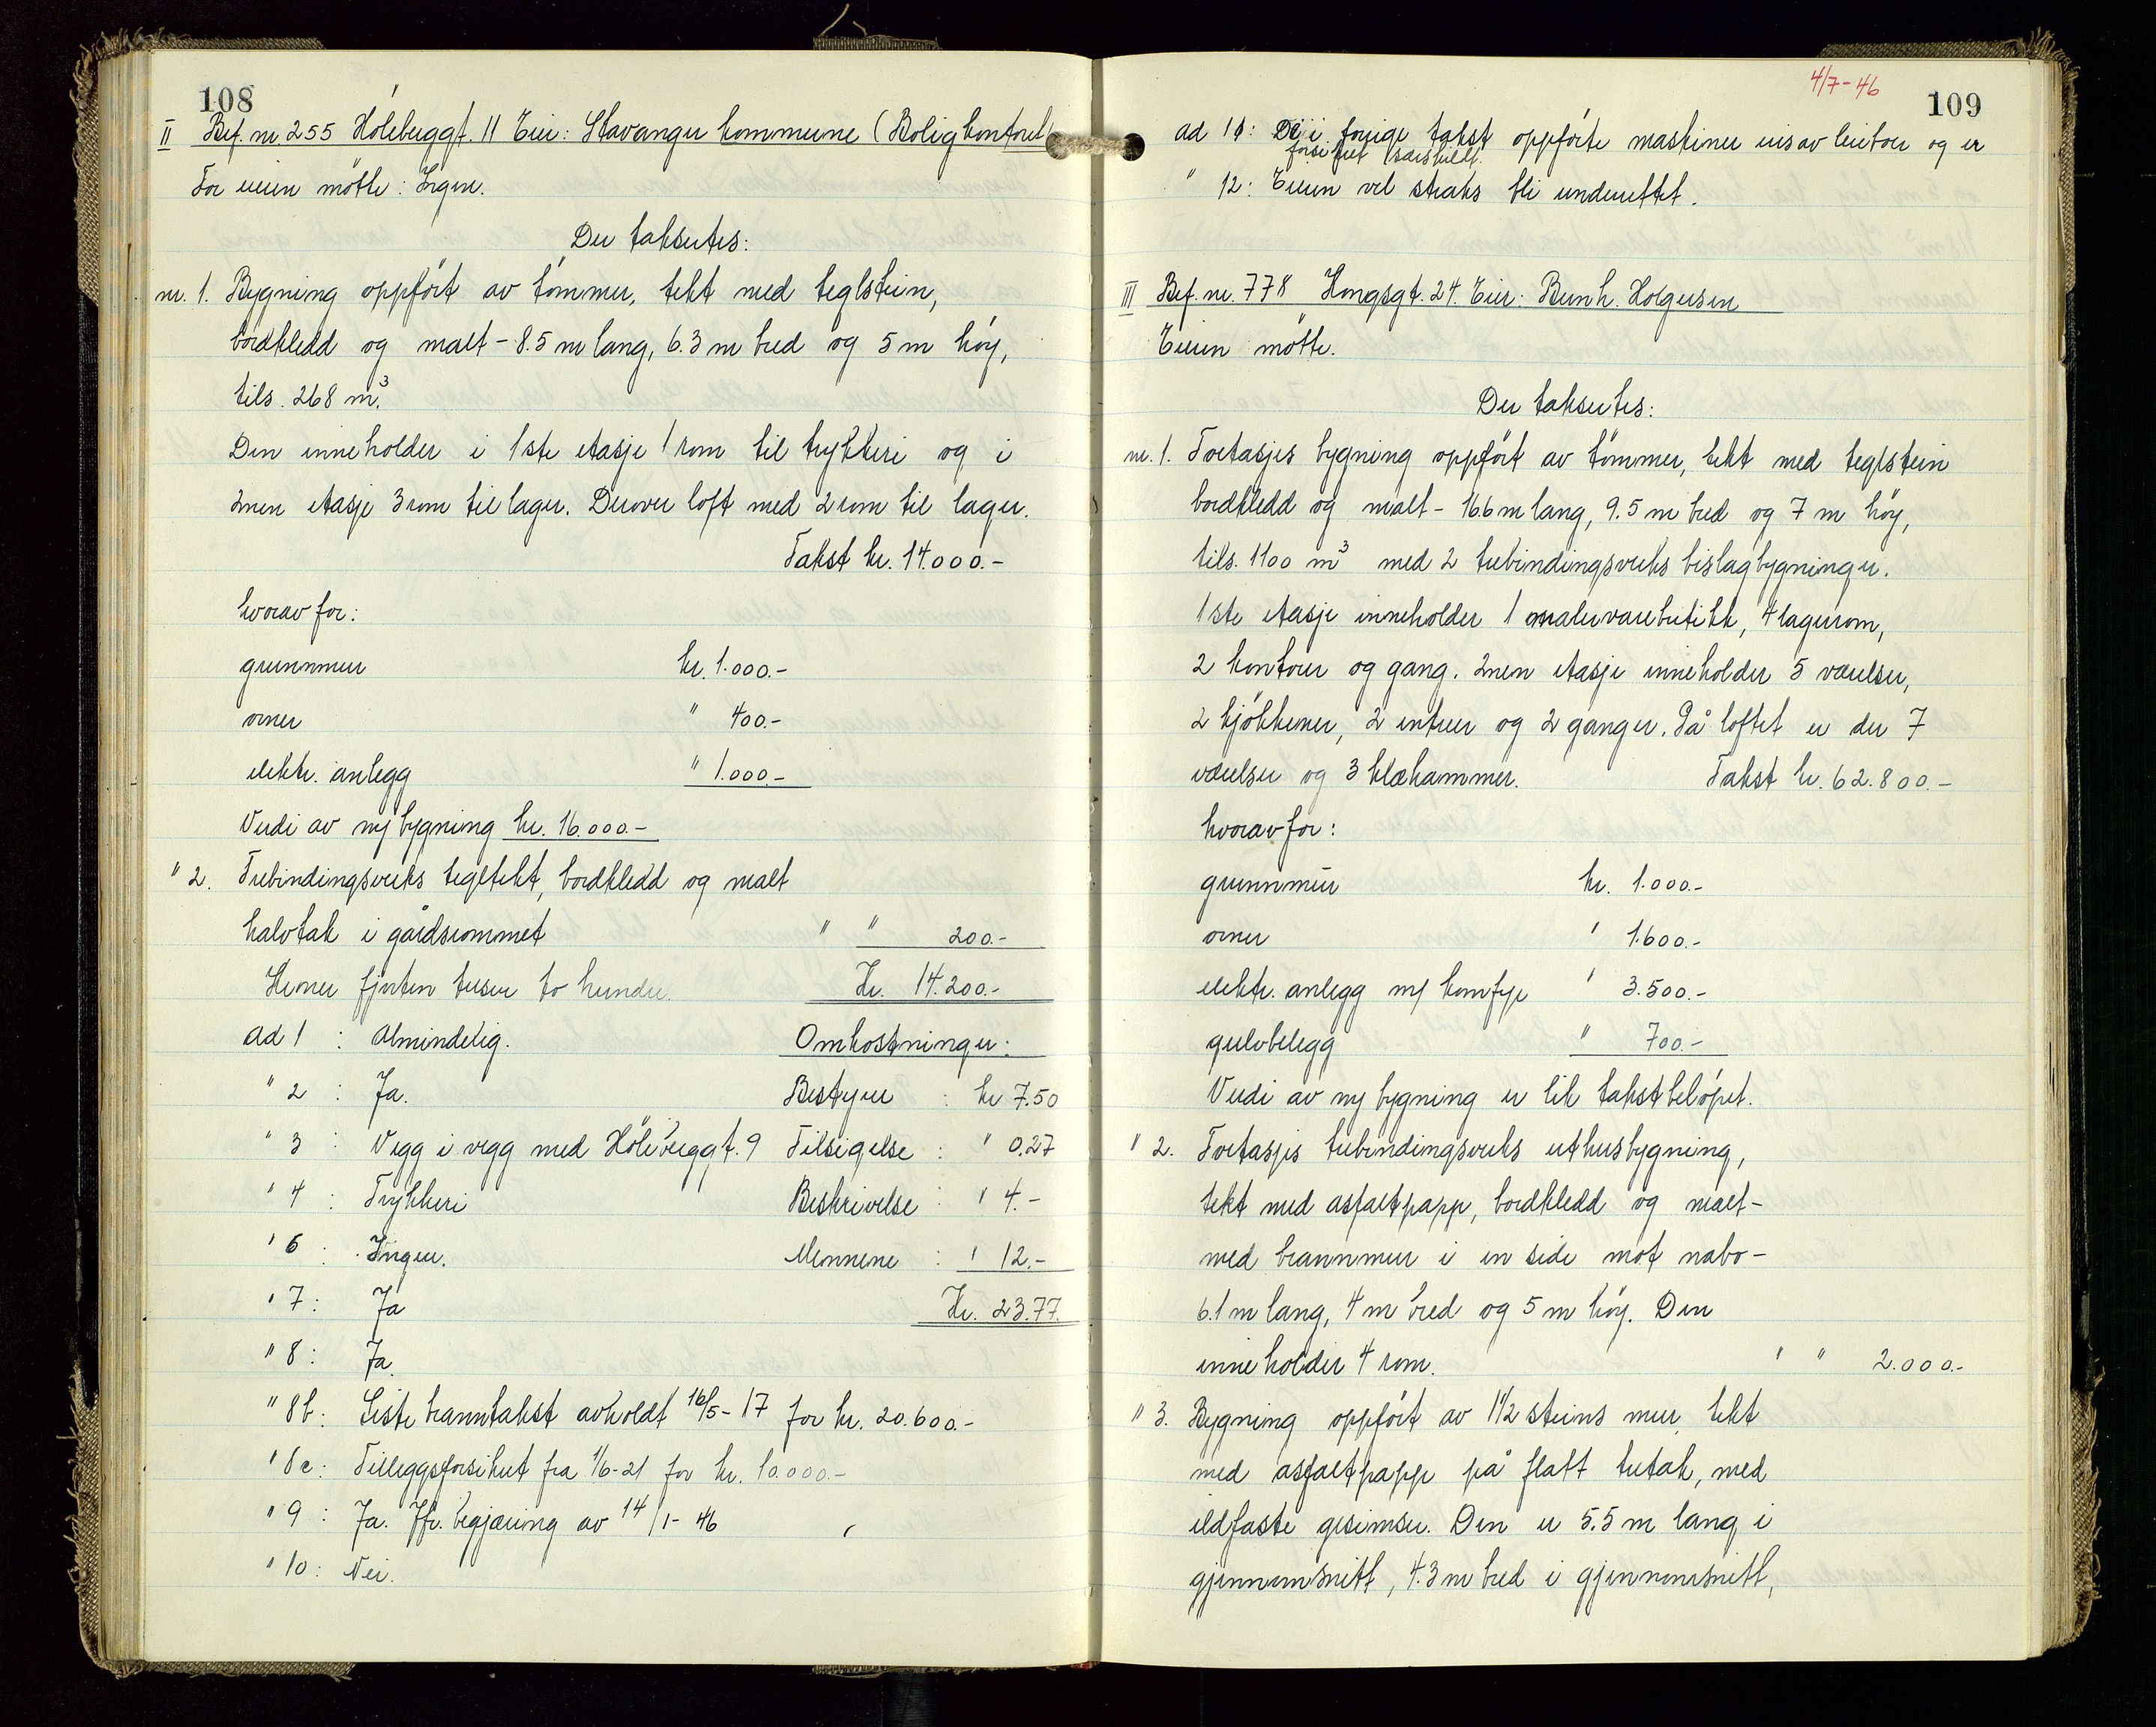 108
II Bef. nr. 255 Hölebuggt. 11 Eier: Stavanger kommune (Boligkontoret)
For eieren mötte: Ingen.
Der takseertes:
nr. 1. Bygning oppfört av tömmer, tekt med teglstein,
bordkledd og malt - 8.5 m lang, 6.3 m bred og 5 m höy,
tils. 268 m³.
Den inneholder i 1ste etasje 1 rom til trykkeri og i
2nen etasje 3 rom til lager. Derover loft med 2 rom til lager.
Takst kr. 14.000.-
hvorav for:
grunnmur kr. 1.000.-
ovner " 400.-
elektr. anlegg " 1.000.-
Verdi av ny bygning kr. 16.000.-
" 2. Trebindingsverks tegltekt, bordkledd og malt
halvtak i gårdsrommet " " 200.-
Kroner fjorten tusen to hundre. Kr. 14.200.-
Ad 1 : Almindelig. Omkostninger:
" 2 : Ja. Bestyrer : kr 7.50
" 3 : Vegg i vegg med Hölebergt. 9 Tilsigelse : " 0.27
" 4 : Trykkeri Beskrivelse : " 4.-
" 6 : Ingen. Mennene : " 12.-
" 7 : Ja Kr. 23.77.
" 8 : Ja.
" 8b : Siste branntakst avholdt 16/5 - 17 for kr. 20.600.-
" 8c : Tilleggsforsikret fra 1/6-21 for kr. 10.000.-
" 9 : Ja. Jfr. begjæring av 14/1- 46
" 10 : Nei.
4/7-46
109
ad 11: De i forrige takst oppförte maskiner eies av leietor og er
forsikret særskilt.
" 12: Eieren vil straks bli underrettet.
III Bef. nr. 778 Kongsgt. 24. Eier: Bernh. Holgersen
Eieren mötte.
Der taksertes:
nr. 1. Toetasjes bygning oppfört av tömmer, tekt med teglstein
bordkledd og malt - 16.6 m lang, 9.5 m bred og 7 m höy,
tils. 1100 m³ med 2 trebindingsverks bislagbygninger.
1ste etasje inneholder 1 malervarebutikk, 4 lagerrom,
2 kontorer og gang. 2nen etasje inneholder 5 værelser,
2 kjökkener, 2 entreer og 2 ganger. På loftet er der 7
værelser og 3 klækammer. Takst kr. 62.800.-
hvorav for:
grunnmur kr. 1.000.-
ovner " 1.600.-
elektr. anlegg m/ komfyr " 3.500.-
gulvbelegg " 700.-
Verdi av ny bygning er lik takstbelöpet.
" 2. Toetasjes trebindingsverks uthusbygning,
tekt med asfaltpapp, bordkledd og malt -
med brannmur i en side mot nabo -
6.1 m lang, 4 m bred og 5 m höy. Den
inneholder 4 rom. " " 2.000.-
" 3. Bygning oppfört av 1 1/2 steins mur, tekt
med asfaltpapp på flatt tretak, med
ildfaste gesimser. Den er 5.5 m lang i
gjennomsnitt, 4.3 m bred i gjennomsnitt,